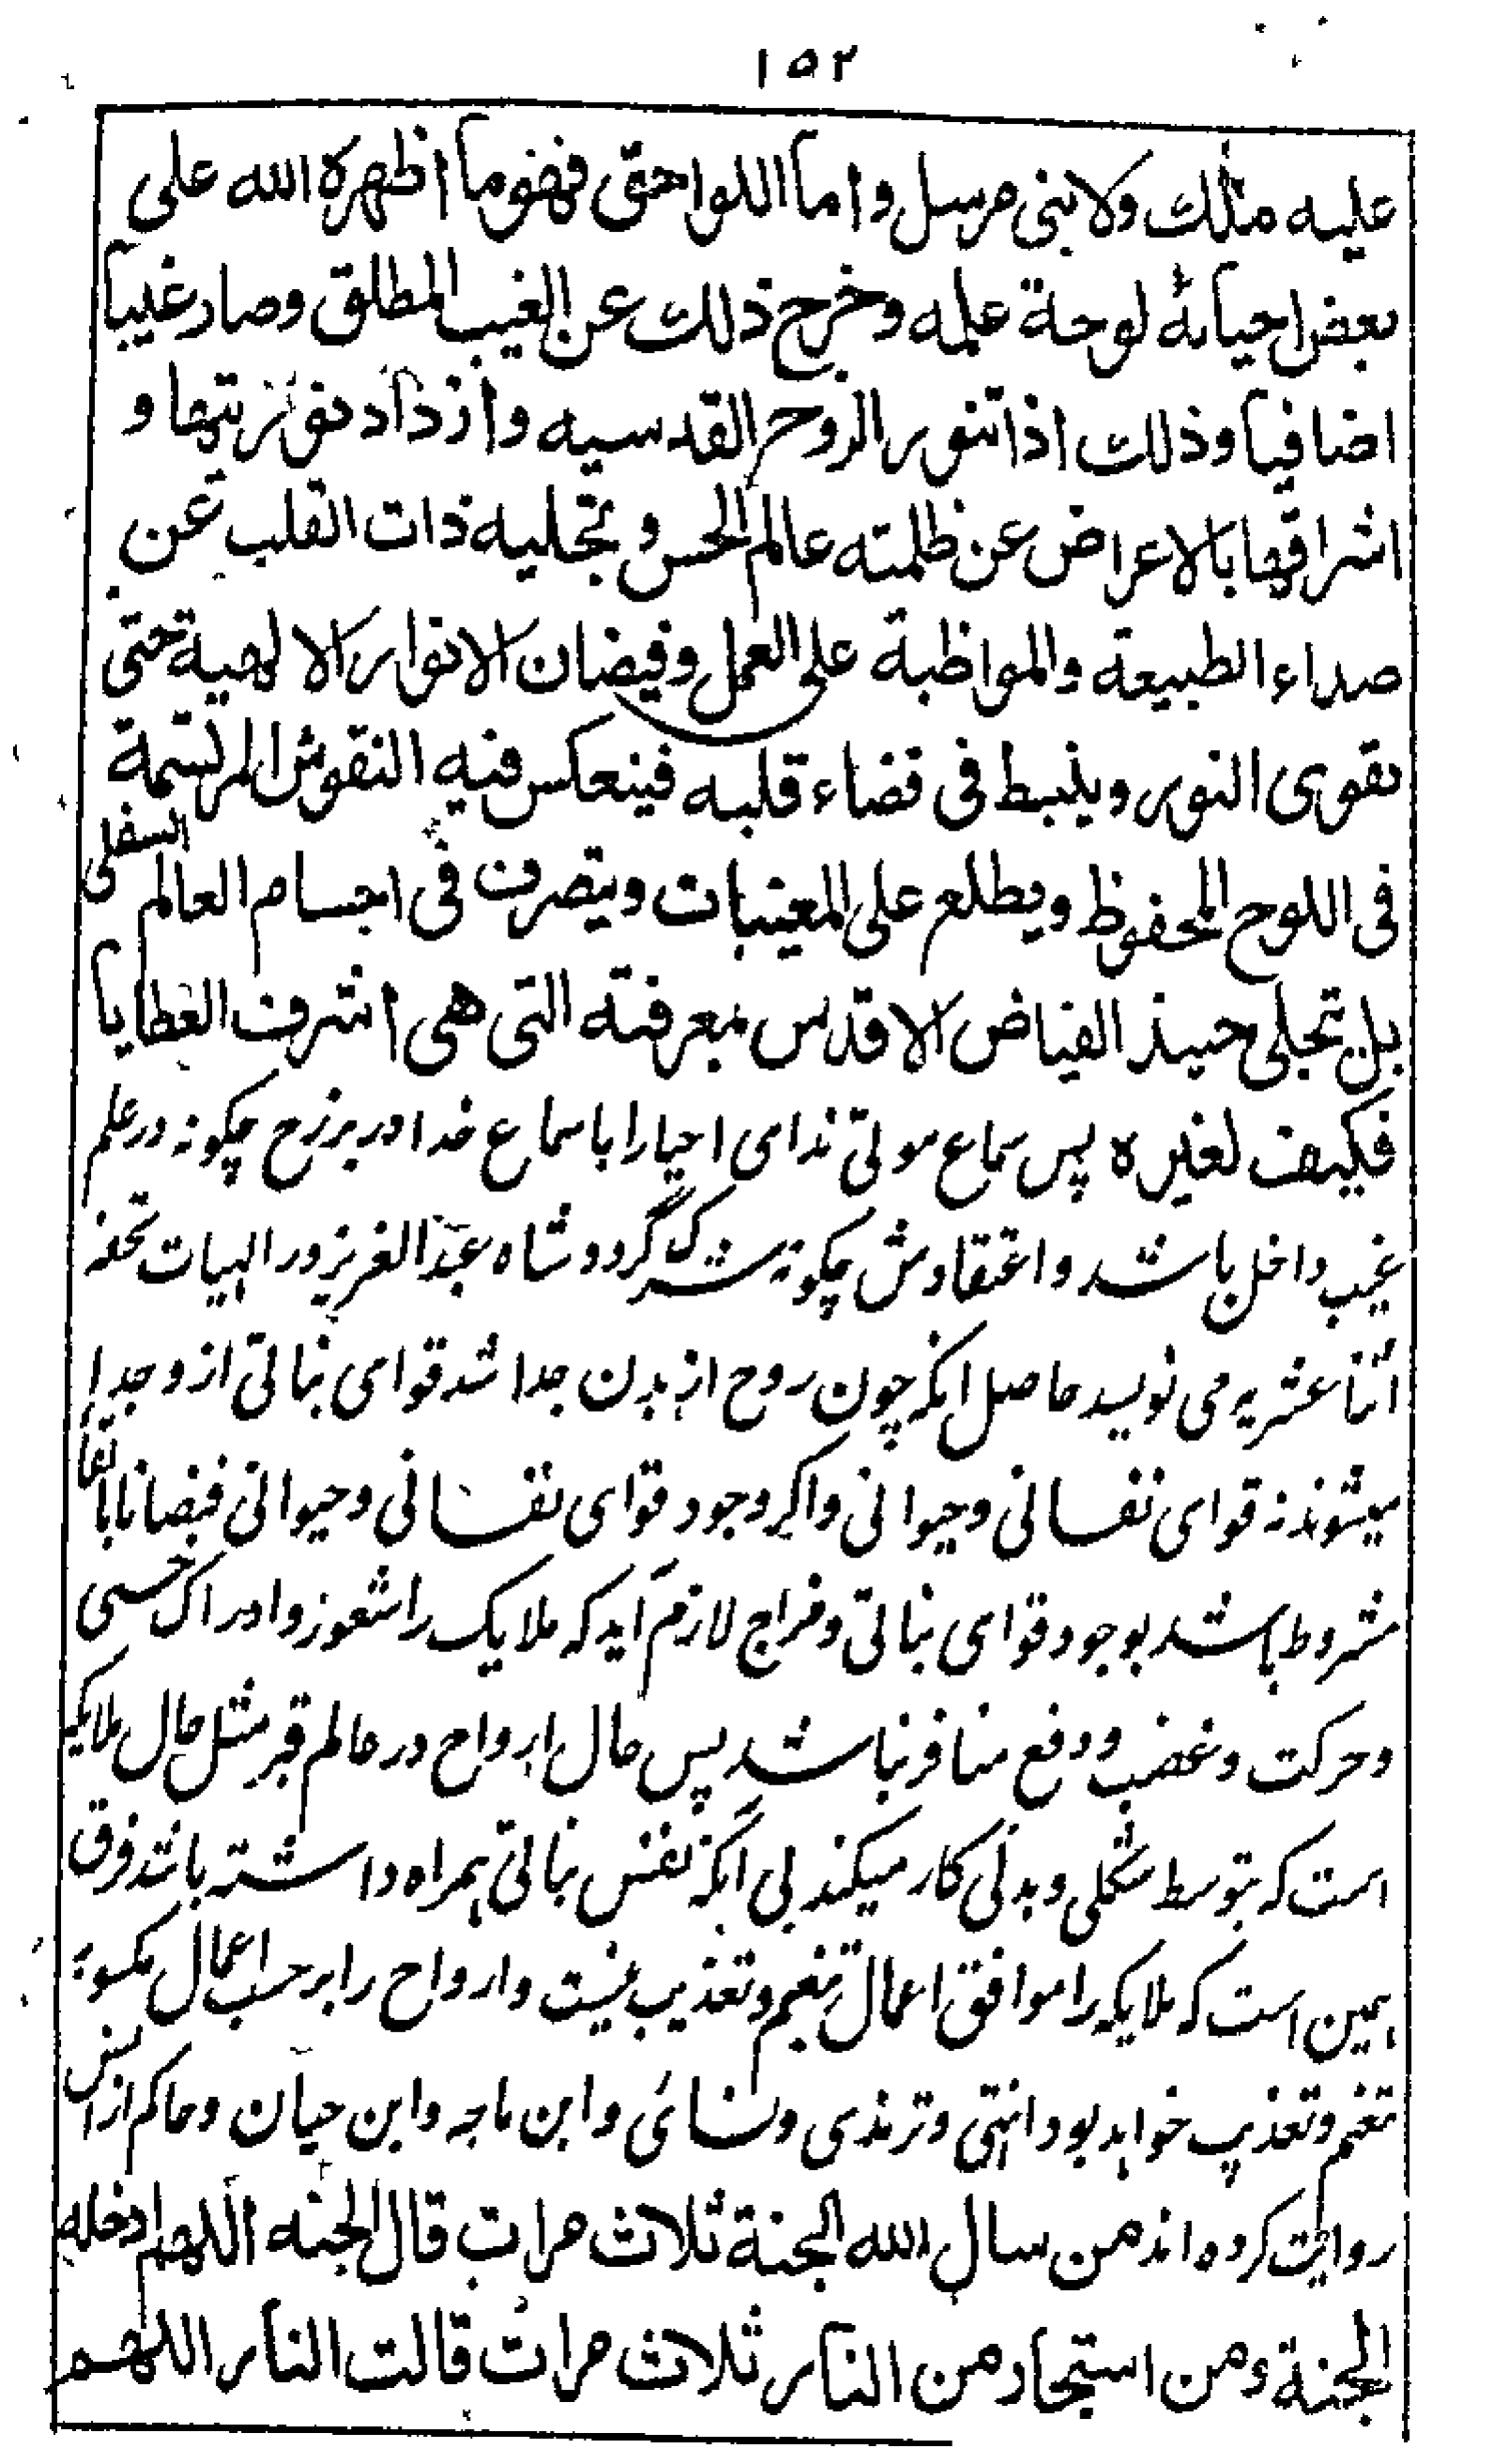 ١٥٢
عليه ملك ولا نبى مرسل واما اللواحق فهو ما اظهره الله على
بعض احيائه لوحة علمه وخرج ذلك عن الغيب المطلق وصار غيبا
اضافيا وذلك اذا تنور الروح القدسيه وازداد نوريتها و
اشراقها بالاعراض عن ظلمته عالم الحس و تجليه ذات القلب عن
صداء الطبيعة والمواظبة على العمل وفيضان الانوار الالهية حتى
يقوى النور وينبسط فى فضاء قلبه فينعكس فيه النقوش المرتسمة
فى اللوح المحفوظ ويطلع على المغيبات ويتصرف فى اجسام العالم السفلى
بل تجلى حينذ الفياض الاقدس بمعرفته التى هى اشرف العطايا
فكيف لغيره پس سماع موتى نداى احيا را باسماع خدا در برزخ چگونه در علم
غيب داخل باشد و اعتقادش چگونه شرک گردد و شاه عبد العزيز در الهيات تحفه
اثنا عشريه مى نويسد حاصل آنکه چون روح از بدن جدا شد قواى نباتى از و جدا
ميشوند نه قواى نفسانى و حيوانى و اگر وجود قواى نفسانى و حيوانى فيضانا بالقا
مشروط باشد بوجود قواى نباتى و مزاج لازم آيد که ملايک را شعور و ادراک حسى
و حرکت و غضب و دفع منافر نباشد پس حال ارواح در عالم قبر مثل حال ملايکه
است که بتوسط شکلى و بدنى کار ميکنند بى آنکه نفس نباتى همراه داشته باشد فرق
همين است که ملايکه را موافق اعمال تنعيم و تعذيب نيست و ارواح را بر حسب اعمال مکسوبه
تنعم و تعذيب خواهد بود انتهى و ترمذى و نسائى و ابن ماجه و ابن حبان و حاکم از انس
روايت کرده اند من سال الله الجنة ثلاث مرات قال الجنه اللهم ادخله
الجنة ومن استجار من النار ثلاث مرات قالت النار اللهم